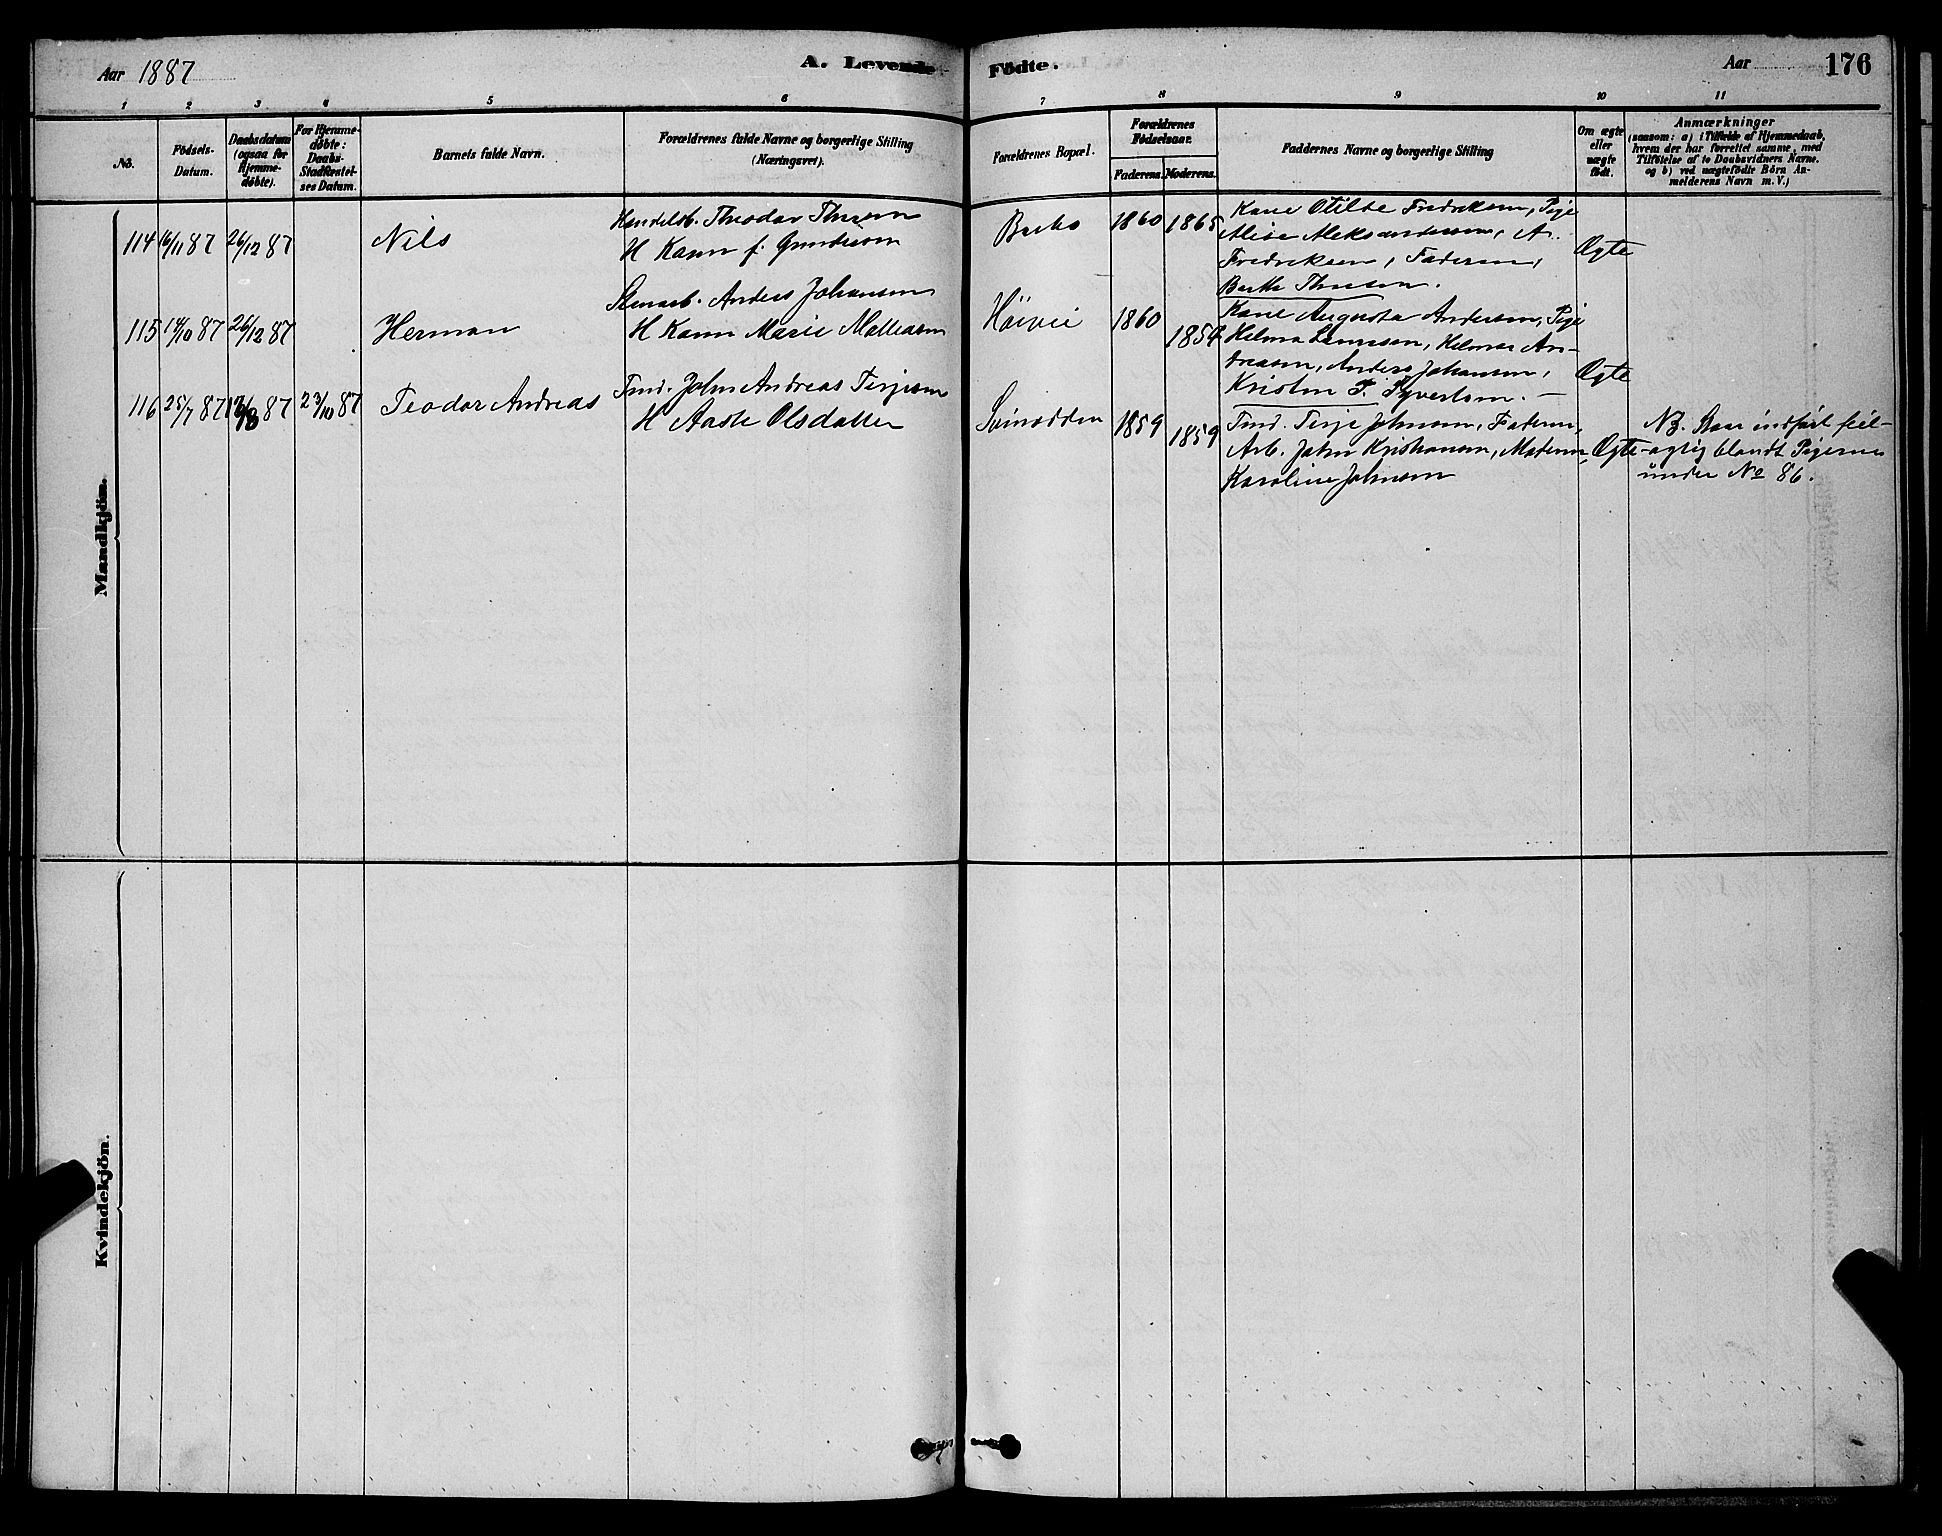 Aar 1887
A. Levende Födte.
Aar
176
1 2 3 4 5 6 7 8 9 10 11
No.
Födsels-Datum.
Daabsdatum (ogsaa for Hjemme-döbte).
For Hjemme-döbte: Daabs-Stadfæstel-ses Datum.
Barnets fulde Navn.
Forældrenes fulde Navne og borgerlige Stilling (Næringsvei).
Forældrenes Bopæl.
Forældrenes Födselsaar.
Faderens. Moderens.
Faddernes Navne og borgerlige Stilling
Om ægte eller uægte födt.
Anmærkninger
(saasom: a) i Tilfælde af Hjemmedaab, hvem der har forrettet samme, med Tilföielse af to Daabsvidners Navne. og b) ved uægtefödte Börn An-melderens Navn m.V.)
Mandkjön.
114 16/11 87 26/12 87 Nils
Handelsb. Theodor
H Kann f. Gundersen
Barbo 1860 1865
Kone Otilde Fredriksen, Pige
Alise Aleksandersen, A.
Fredriksen, Faderen,
Berthe
Ægte
115 14/10 87 26/12 87 Herman
Stenarb. Anders Johansen
H Kann Marie
Höivei 1860 1854
Kone Augusta Andersen, Pige
Helma Helmer An-
dreasen, Anders Johansen,
Kristen T. Syvertsen. —
Ægte
116 25/7 87 87 23/10 87 Teodor Andreas
Tmd. John Andreas Terjesen
H Aaste Olsdatter
Svinodden 1859 1859
Tmd. Terje Johnsen, Faderen,
Arb. John Kristiansen, Moderen,
Karoline Johnsen
Ægte
NB. Staar indfört feil-
agtig blandt Pigerne
under No 86.
Kvindekjön.